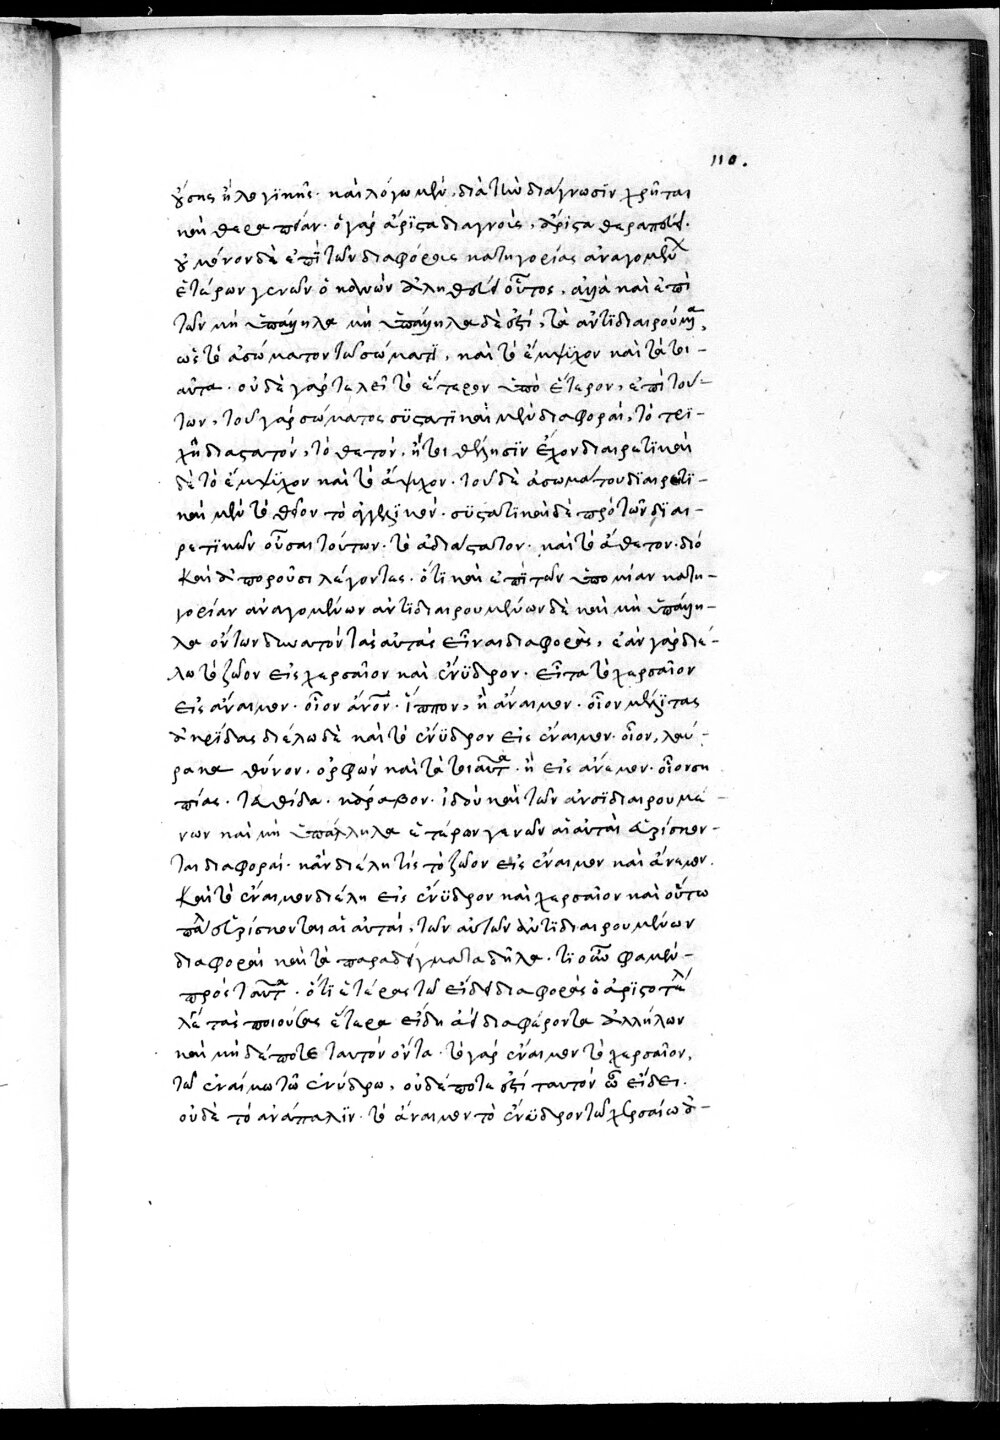 110.
ούσης ἢ λογϊκῆς· καὶ λόγω μὲν, διὰ τὴν διάγνωσϊν χρῆται
καὶ θεραπείαν· ὁ γὰρ ἄρϊστα διαγνοὺς, ἄρϊστα θεραπεύει·
οὐ μόνον δὲ ἐπὶ τῶν διαφόρους κατηγορίας ἀναγομένων
ἑτέρων γενῶν ὁ κανὼν ἀληθεύει οὗτος, ἀλλὰ καὶ ἐπὶ
τῶν μὴ ὑπάλληλα μὴ ὑπάλληλα δέ ἐστι, τὰ ἀντϊδιαιρούμενα,
ὡς τὸ ἀσώματον τῶ σώματϊ, καὶ τὸ ἔμψϋχον καὶ τὰ τοι-
αῦτα· οὐδὲ γὰρ τελεῖ τὸ ἕτερον ὑπὸ ἕτερον, ἐπὶ τού-
των, τοῦ γὰρ σώματος σϋστατϊκαὶ μὲν διαφοραὶ, τὸ τρϊ-
χῆ διαστατόν, τὸ θετόν, ἤτοι θέσϊν ἔχον διαιρετϊκαὶ
δὲ τὸ ἔμψϋχον καὶ τὸ ἄψυχον· τοῦ δὲ ἀσωμάτου δϊαιρετϊ-
καὶ μὲν τὸ θεῖον τὸ ἀγγελϊκόν· σϋστατϊκαὶ δὲ πρὸ τῶν δϊαι-
ρετϊκῶν οὖσαι τούτων· τὸ ἀδιάστατον· καὶ τὸ ἄθετον· διό
καὶ ἀποροῦσι λέγοντες· ὅτϊ καὶ ἐπὶ τῶν ὑπὸ μίαν κατη-
γορίαν ἀναγομένων ἀντϊδιαιρουμένων δὲ καὶ μὴ ὑπάλλη-
λα ὄντων δυνατὸν τὰς αὐτὰς εἶναι διαφορὰς, ἐὰν γὰρ διέ-
λω τὸ ζῶον εἰς χερσαῖον καὶ ἔνϋδρον· εἶτα τὸ χερσαῖον
εἰς ἔναιμον· οἷον ἄνον· ἵππον, ἢ ἄναιμον· οἷον μελϊτας
ἀκρίδας διέλω δὲ καὶ τὸ ἔνϋδρον εἰς ἔναιμον· οἷον, λαύ-
ρακα θύνον· ὀρφὼν καὶ τὰ τοιαῦτα· ἢ εἰς ἄναιμον· οἷον ση
πίας· τευθίδα· κάραβον· ἰδοὺ καὶ τῶν ἀντϊδιαιρουμέ-
νων καὶ μὴ ὑπάλληλα ἑτέρων γενῶν αἱ αὐταὶ εὑρίσκον-
ται διαφοραί· κἂν διέλη τίς τὸ ζῶον εἰς ἔναιμον καὶ ἄναιμον.
καὶ τὸ ἔναιμον διέλη εἰς ἔνϋδρον καὶ χερσαῖον καὶ οὕτω
πάλιν εὑρίσκονται αἱ αὐταί, τῶν αὐτῶν ἀντϊδιαιρουμένων
διαφοραὶ καὶ τὰ παραδείγματα δῆλα· τί οὖν φαμὲν-
πρὸς ταῦτα· ὅτϊ ἑτέρας τῶ εἴδει διαφορὰς ὁ ἀρϊστοτέλης
λέγει τὰς ποιούσας ἕτερα εἴδη ἀεὶ διαφέροντα ἀλλήλων
καὶ μηδέποτε ταυτὸν ὄντα· τὸ γὰρ ἔναιμον τὸ χερσαῖον,
τῶ ἐναίμω τῶ ἐνύδρω, οὐδέποτέ ἐστι ταυτὸν τῶ εἴδει·
οὐδὲ τὸ ἀνάπαλϊν· τὸ ἄναιμον τὸ ἔνϋδρον τῶ χερσαίω ἀ-